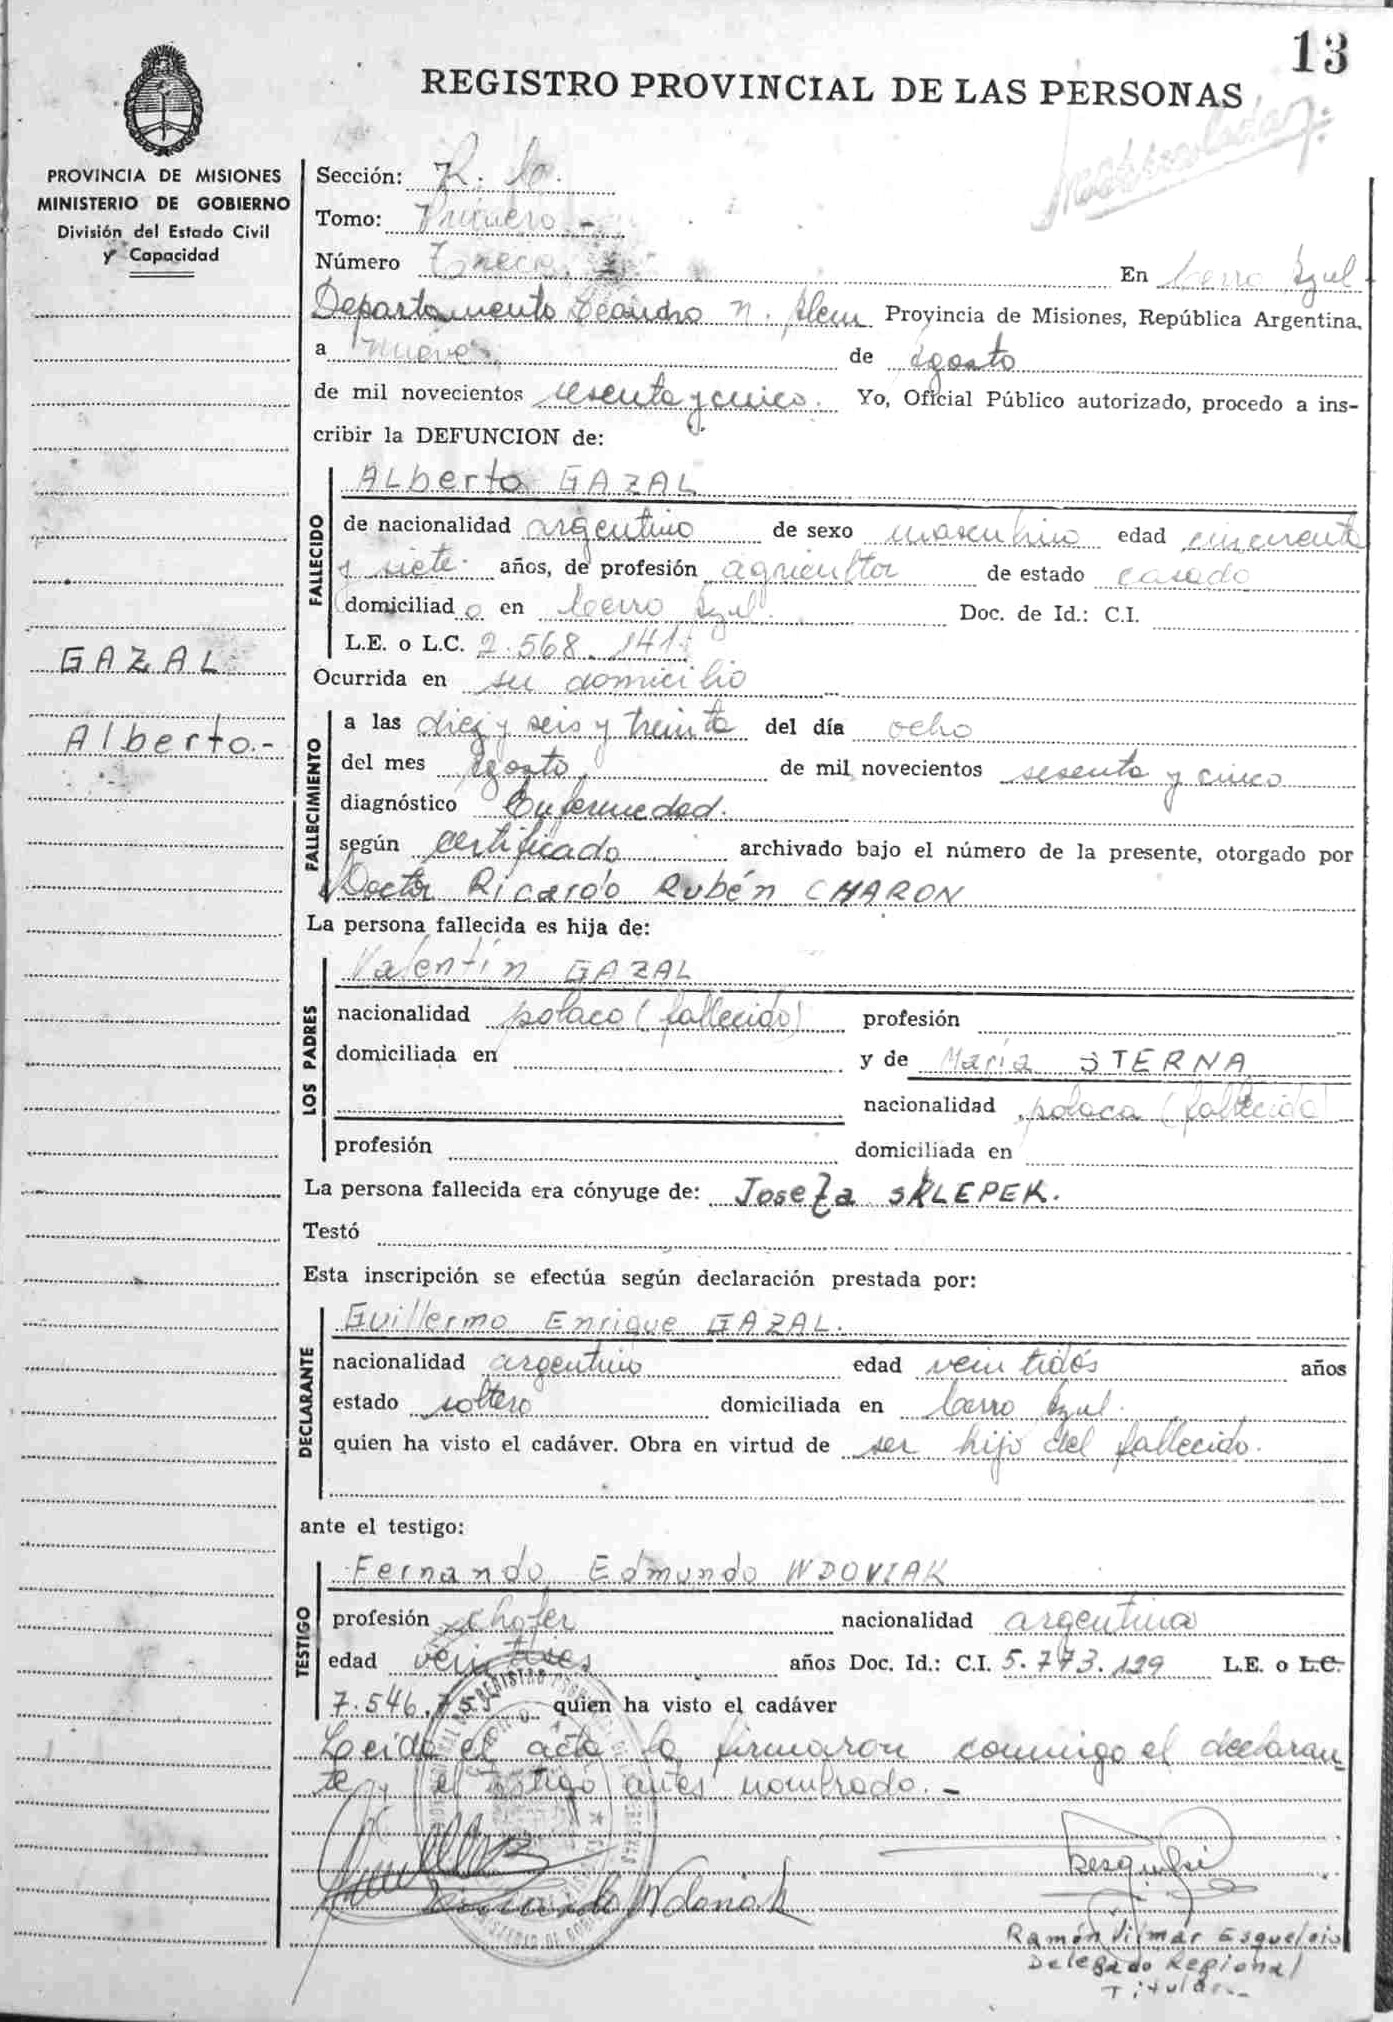 13
REGISTRO PROVINCIAL DE LAS PERSONAS
PROVINCIA DE MISIONES
MINISTERIO DE GOBIERNO
División del Estado Civil
y Capacidad
Sección:
Tomo: Primero.-
Número Trece. En Cerro Azul
Departamento Leandro N. Alem Provincia de Misiones, República Argentina,
a nueve de Agosto
de mil novecientos sesenta y cinco. Yo, Oficial Público autorizado, procedo a ins-
cribir la DEFUNCION de:
GAZAL
Alberto.-
FALLECIDO
Alberto GAZAL
de nacionalidad argentino de sexo masculino edad cincuenta
y siete años, de profesión agricultor de estado casado
domiciliado en Cerro Azul. Doc. de Id.: C.I.
L.E. o L.C. 2.568.141.
Ocurrida en su domicilio
FALLECIMIENTO
a las diez y seis y treinta del día ocho
del mes Agosto de mil novecientos sesenta y cinco
diagnóstico Enfermedad.
según certificado archivado bajo el número de la presente, otorgado por
Doctor Ricardo Rubén CHARON
La persona fallecida es hija de:
LOS PADRES
Valentín GAZAL
nacionalidad polaco (fallecido) profesión
domiciliada en y de María STERNA
nacionalidad polaca (fallecida)
profesión domiciliada en
La persona fallecida era cónyuge de: Josefa SKLEPEK.
Testó
Esta inscripción se efectúa según declaración prestada por:
DECLARANTE
Guillermo Enrique GAZAL.
nacionalidad argentino edad veintidós años
estado soltero domiciliada en Cerro Azul.
quien ha visto el cadáver. Obra en virtud de ser hijo del fallecido.
ante el testigo:
TESTIGO
Fernando Edmundo WDOVIAK
profesión chofer nacionalidad argentina
edad veintitres años Doc. Id.: C.I. 5.773.129 L.E. o L.C.
7.546. quien ha visto el cadáver
Leida el acta la firmaron conmigo el declaran
te y el testigo antes nombrado.-
Ramón Esquelojo
Delegado Regional
Titular.-